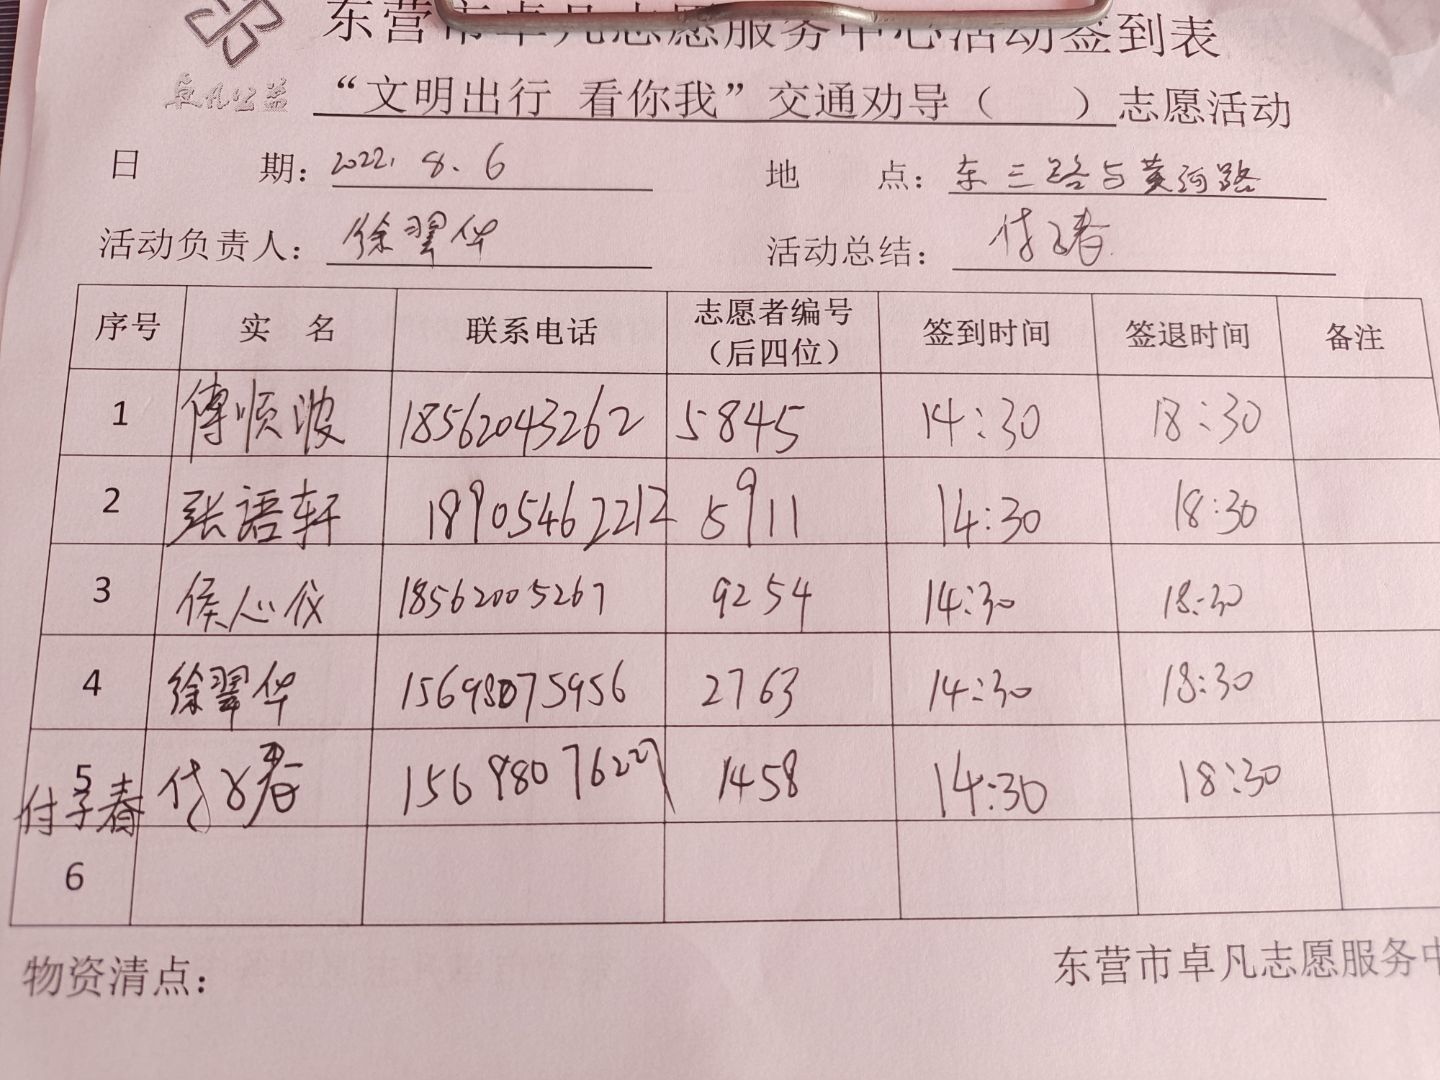 东营市卓凡志愿服务中心活动签到表
卓凡公益
“文明出行 看你我”交通劝导（ ）志愿活动
日 期：2022.8.6 地 点：东三路与黄河路
活动负责人：徐翠华 活动总结：付子春
序号 实 名 联系电话 志愿者编号（后四位） 签到时间 签退时间 备注
1 傅顺波 18562043262 5845 14:30 18:30
2 张语轩 18905462212 5911 14:30 18:30
3 侯心仪 18562005267 9254 14:30 18:30
4 徐翠华 15698075956 2763 14:30 18:30
5 付子春 15698076227 1458 14:30 18:30
付子春
6
物资清点： 东营市卓凡志愿服务中